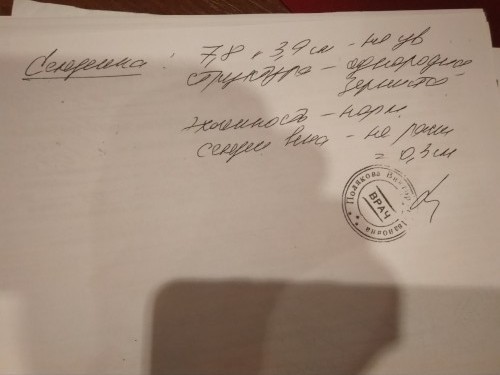 Селезенка: 7,8 x 3,9 см - не ув
структура - однородная
зернистая
эхогенность - норм
селезен вена - не расш
= 0,3 см
Полякова Виктория Ивановна
ВРАЧ